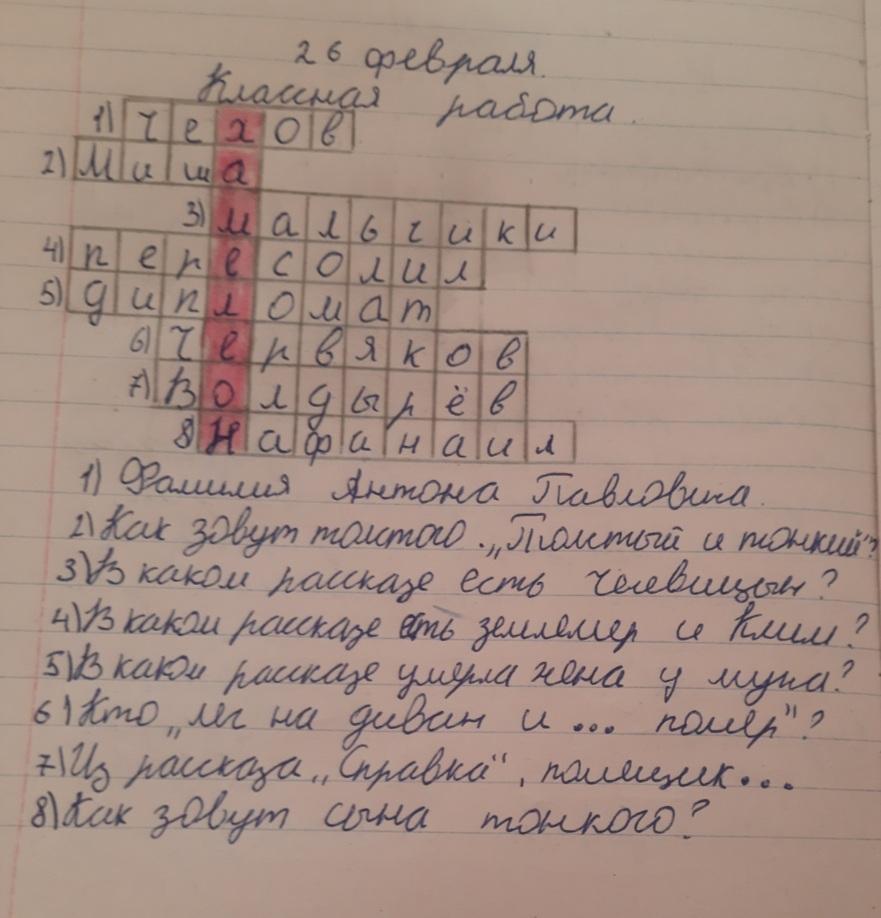 26 февраля.
Классная работа.
1) Чехов
2) Миша
3) мальчики
4) пересолил
5) дипломат
6) Червяков
7) Волдырёв
8) Нафанаил
1) Фамилия Антона Павловича.
2) Как зовут толстого. „Толстый и тонкий"?
3) В каком рассказе есть Чечевицын?
4) В каком рассказе есть землемер и Клим?
5) В каком рассказе умерла жена у мужа?
6) Кто „лег на диван и ... помер"?
7) Из рассказа „Справка", помещик...
8) Как зовут сына тонкого?